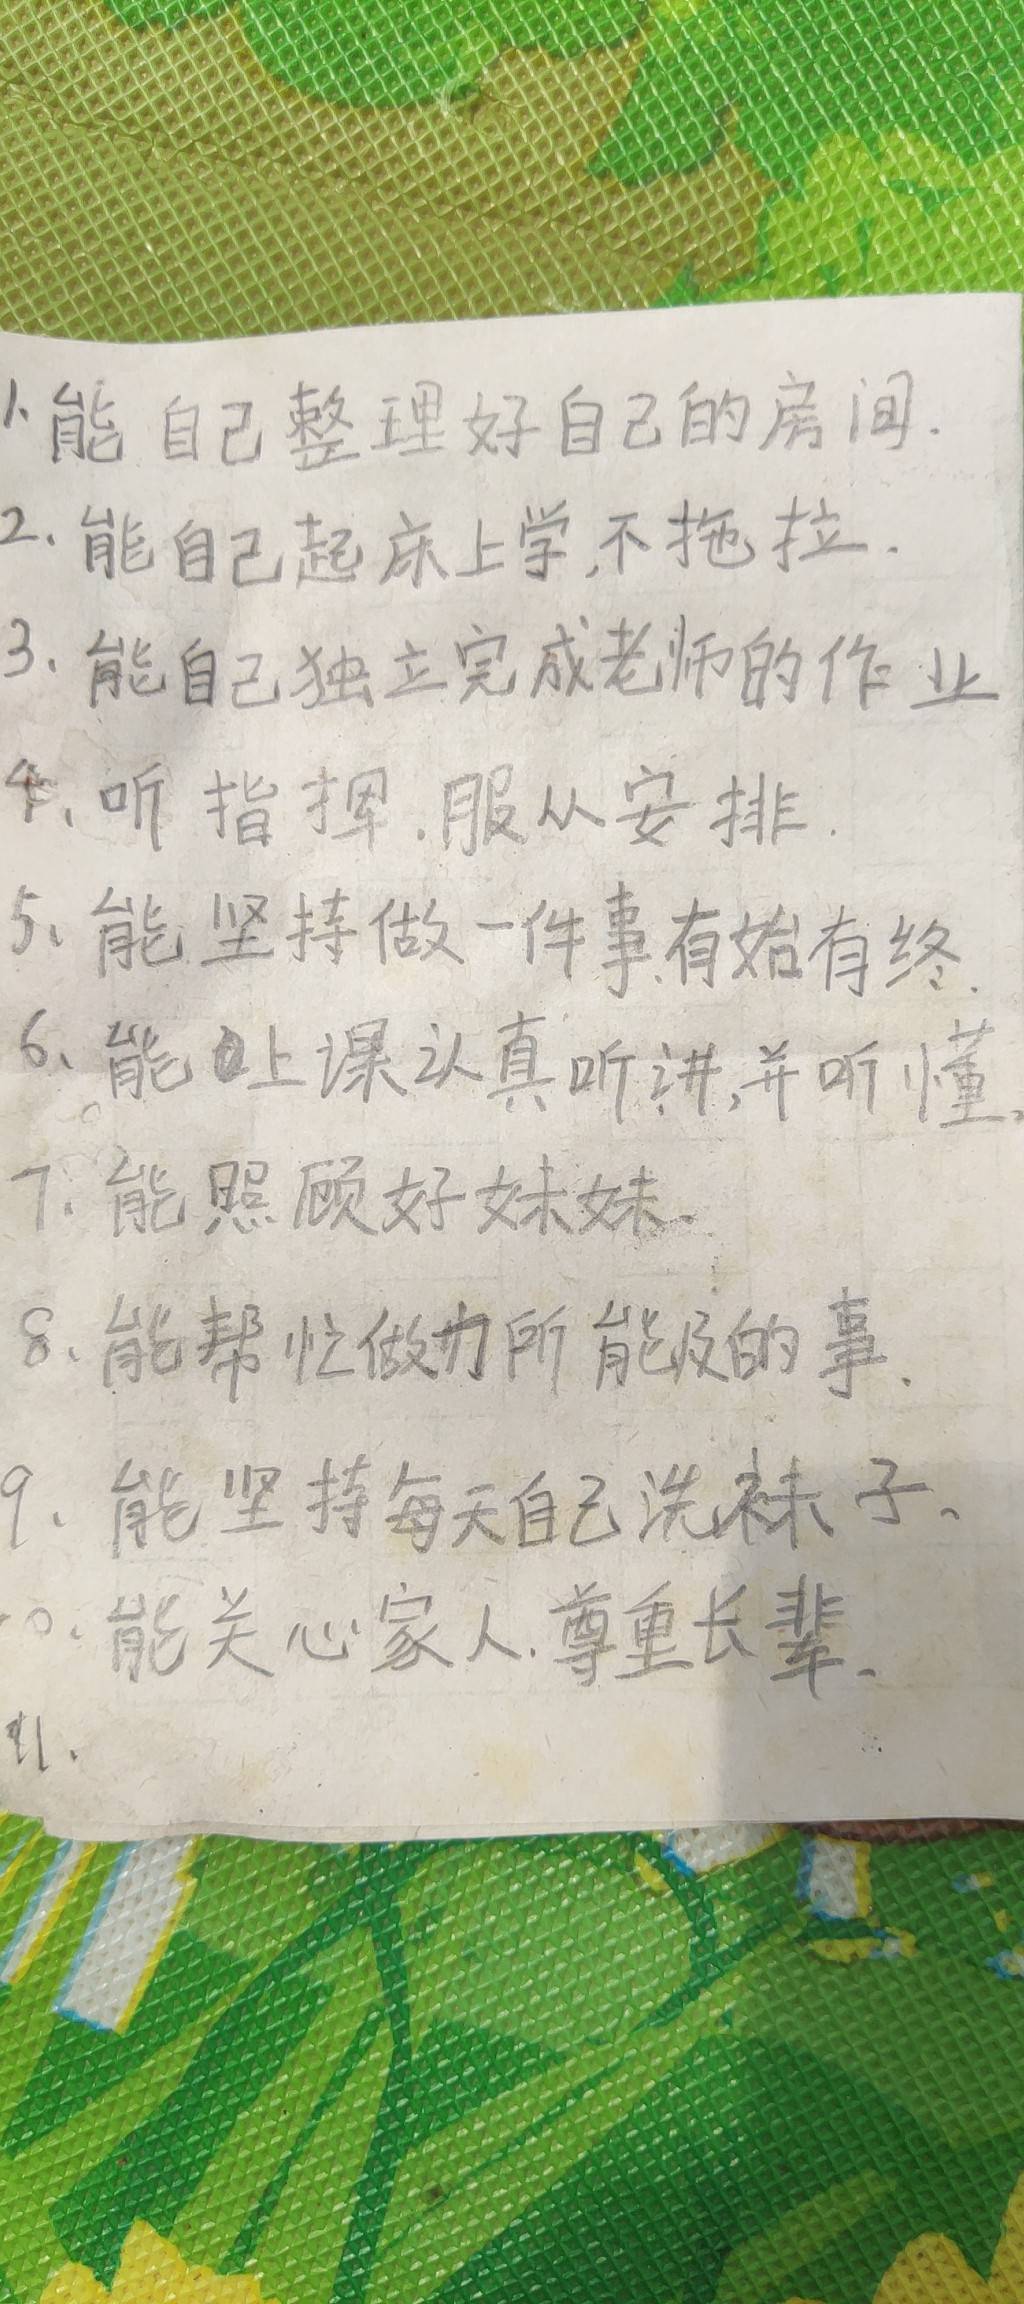 1. 能自己整理好自己的房间.
2. 能自己起床上学,不拖拉.
3. 能自己独立完成老师的作业
4. 听指挥.服从安排.
5. 能坚持做一件事.有始有终.
6. 能上课认真听讲,并听懂.
7. 能照顾好妹妹.
8. 能帮忙做力所能及的事.
9. 能坚持每天自己洗袜子.
10. 能关心家人.尊重长辈.
11.